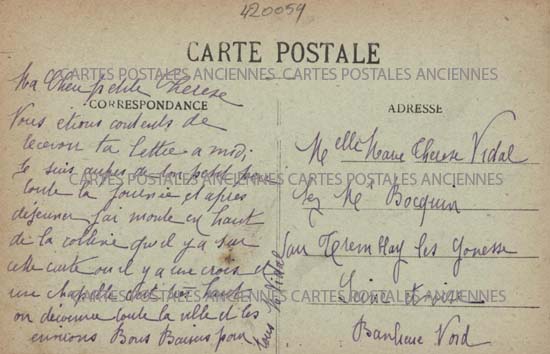 420059
CARTE POSTALE
CARTES POSTALES ANCIENNES CARTES POSTALES ANCIENNES
Ma Cheu petite Therese
CORRESPONDANCE
Nous etions contents de
recevoir ta lettre a midi
Je suis aupres de ton petit
CARTES POSTALES ANCIENNES CARTES POSTALES ANCIENNES
toute la journée et apres
dejeuner j'ai monté en haut
de la colline qu'il y a sur
cette carte ou il y a une crois et
une chapelle dont
CARTES POSTALES ANCIENNES CARTES POSTALES ANCIENNES
on decouvre toute la ville et les
environs Bons Baisers pour
tous Vidal
ADRESSE
Melle Marie Therese Vidal
chez Mr Bocquin
Tremblay les Gonesse
Seine et oise
Banlieue Nord